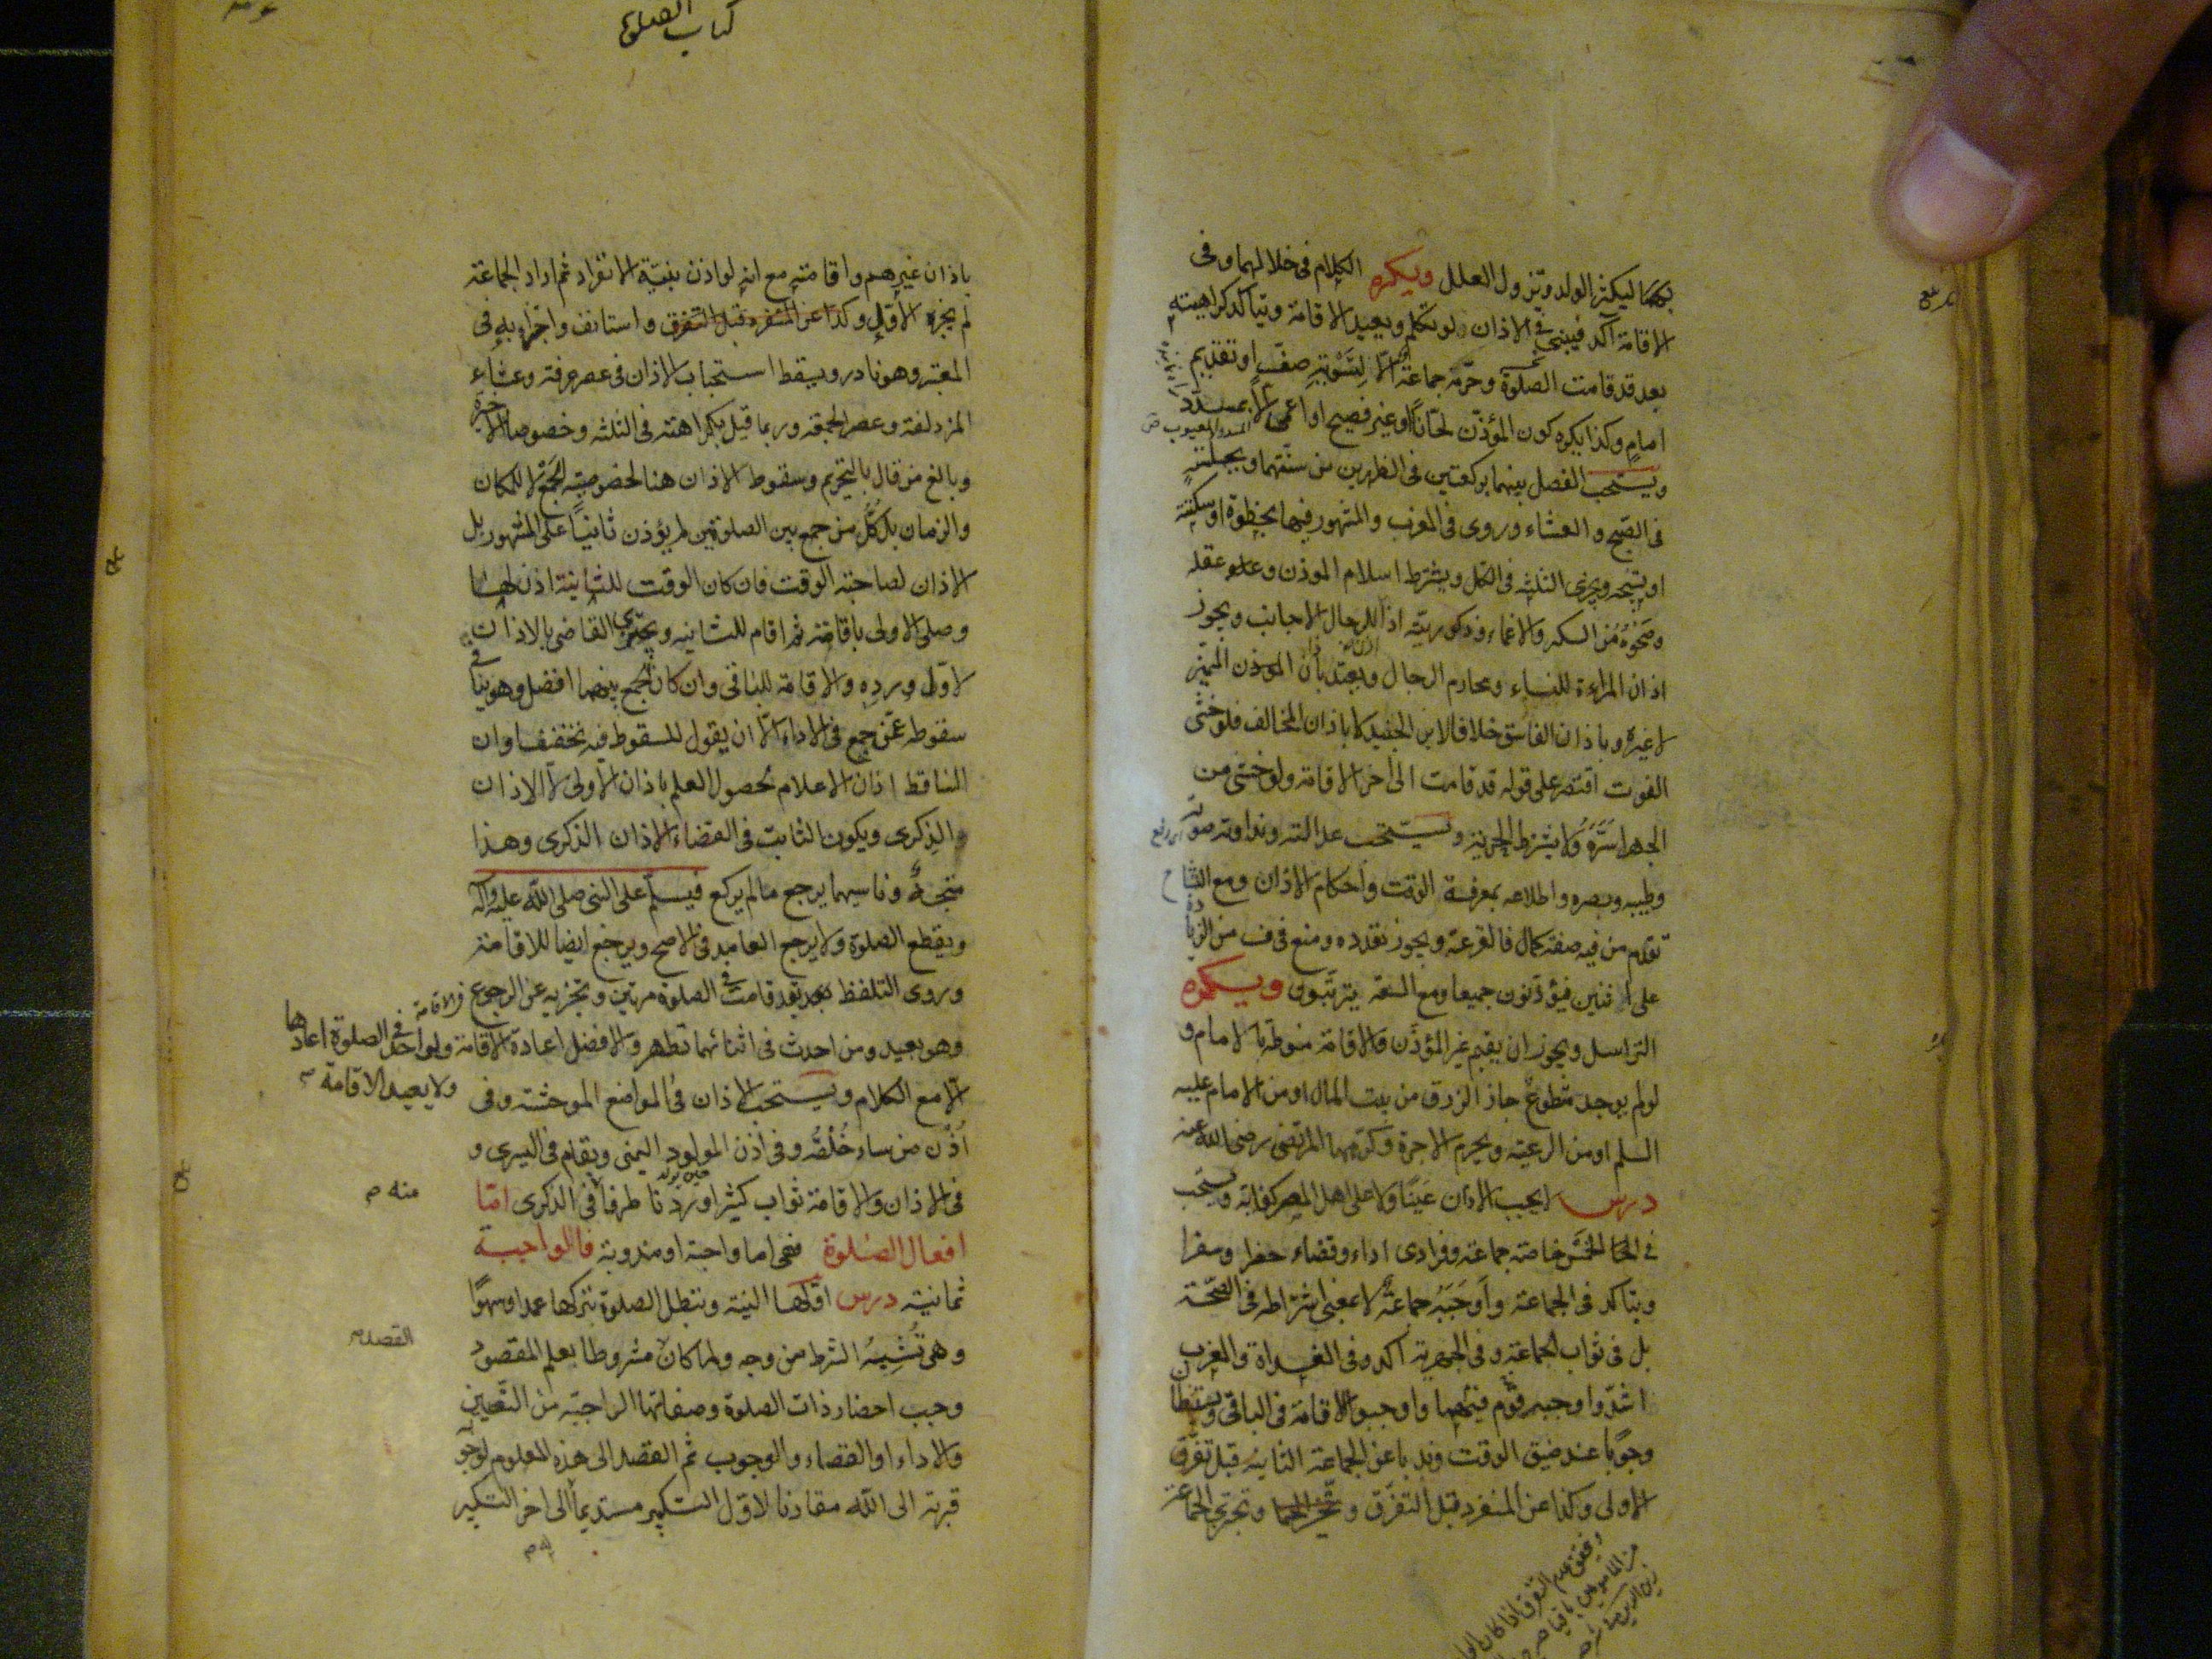 بهما ليكثر الولد وتزول العلل ويكره الكلام في خلالهما وفى
الاقامة آكد فيبنى في الاذان لو تكلم ويعيد الاقامة ويتأكد كراهيته
بعد قد قامت الصلوة وحرّمه جماعة الّا لتسوية صفّ او تقديم
امام وكذا يكره كون المؤذن لحّانًا او غير فصيح او اعمى الّا بمسدّد
ويستحب الفصل بينهما بركعتين فى الظهرين من سنتهما وبجلسة
فى الصبح والعشاء وروى فى المغرب والمشهور فيها بخطوة او سكتة
او تسبيحه ويجزى الثلثه فى الكل ويشترط اسلام الموذن وعلو عقله
وصحوه من السكر والاغماء وذكوريته اذا للرجال الاجانب ويجوز
اذان المراءة للنساء ومحارم الرجال ويعتد باذن الموذن المميّز
لا غيره وباذان الفاسق خلافا لابن الجنيد لا باذان المخالف فلو خشى
الفوت اقتصر على قوله قد قامت الى آخر الاقامة ولو خشى من
الجهر اسرّه ولا يشترط الحرية ويستحب عدالته ونداوة صوته
وطيبه وبصره واطلاعه بمعرفة الوقت واحكام الاذان ومع التشاح
تقدم من فيه صفة كمال فالقرعة ويجوز تعدده ومنع فى ف من الزيادة
على اثنين فيؤذنون جميعا ومع السعة يترتبون ويكره
التراسل ويجوز ان يقيم غير المؤذن والاقامة منوطة بالامام و
لو لم يوجد متطوع جاز الرزق من بيت المال او من الامام عليه
السلم او من الرعية ويحرم الاجرة وكرهها المرتضى رضى الله عنه
درس لا يجب الاذان عينًا ولا على اهل المصر كفاية ويستحب
في الخمس خاصة جماعة وفرادى اداء وقضاء حضرا وسفرا
ويتاكد فى الجماعة وأوجبه جماعة لا بمعنى اشتراطه فى الصحّة
بل فى ثواب الجماعة وفى الجهرية آكد وفى الغداة والمغرب
اشدّ واوجبه قوم فيهما واوجبوا الاقامة فى الباقى ويسقطان
وجوبا عند ضيق الوقت وندبا عن الجماعة الثانيه قبل تفرق
الاولى وكذا عن المنفرد قبل التفرق وتجتزى الجماعة
كتاب الصلوة
باذان غيرهم واقامته مع انه لو اذن بنيّة الانفراد ثم اراد الجماعة
لم يجزه الأوّل وكذا عن المنفرد قبل التفرق واستانف واجتزاء به فى
المعتبر وهو نادر ويسقط استحباب الاذان فى عصر عرفة وعشاء
المزدلفة وعصر الجمعة وربما قيل بكراهته فى الثلثه وخصوصا الاخيرة
وبالغ من قال بالتحريم وسقوط الاذان هنا لخصوصية الجمع لا للمكان
والزمان بل كل من جمع بين الصلوتين لم يؤذن ثانيًا على المشهور بل
الاذان لصاحبة الوقت فان كان الوقت للثانية اذن لها
وصلى الاولى باقامة ثم اقام للثانيه ويجتزى القاضى بالاذان
لاوّل ورده والاقامة للباقى وان كان الجمع بينهما افضل وهو ينافى
سقوطه عمّن جمع فى الاداء الّا ان يقول للسقوط فيه تخفيف او ان
الساقط اذان الاعلام لحصول العلم باذان الاولى لا الاذان
الذكرى ويكون الثابت فى القضاء الاذان الذكرى وهذا
متجه وناسيهما يرجع ما لم يركع فيسلم على النبى صلى الله عليه وآله
ويقطع الصلوة ولا يرجع العامد فى الاصح ويرجع ايضا للاقامة
وروى التلفظ بقد قامت الصلوة مرتين ويجزيه عن الرجوع
وهو بعيد ومن احدث فى اثنائهما تطهر والافضل اعادة الاقامة ولو احدث فى الصلوة اعادها
ولا يعيد الاقامة
الّا مع الكلام ويستحب الاذان فى المواضع الموحشة وفى
أذن من ساء خلقه وفى اذن المولود اليمنى ويقام فى اليسرى و
فى الاذان والاقامة ثواب كثير اوردنا طرفا فى الذكرى امّا
منه
افعال الصلوة فهى اما واجبة او مندوبة فالواجبة
ثمانية درس اوّلها النية وتبطل الصلوة بتركها عمدا وسهوًا
وهى تُشبِهُ الشرط من وجه ولما كان مشروطا بعلم المقصود
القصد
وجب احضار ذات الصلوة وصفاتها الواجبة من التعيين
والاداء او القضاء والوجوب ثم القصد الى هذه المعلوم لوجوبه
قربة الى الله مقارنا لاوّل التكبير مستديمًا الى اخر التكبير